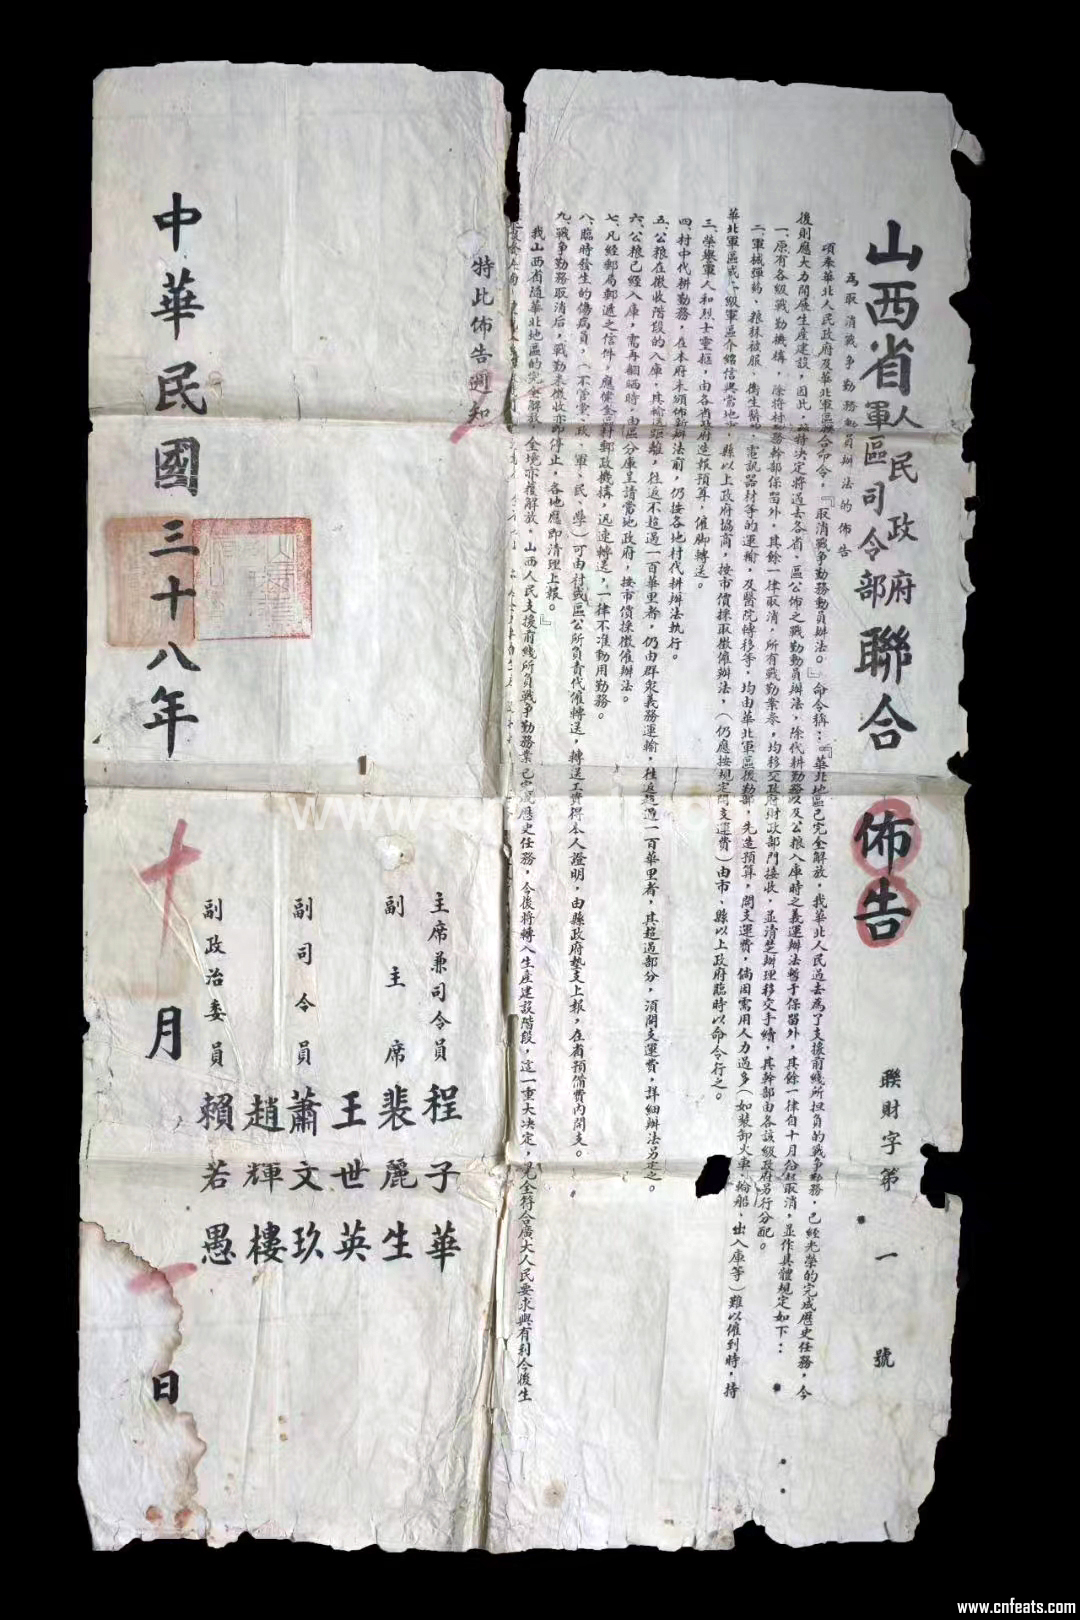 山西省人民政府軍區司令部聯合佈告
聯財字第一號
為取消戰爭勤務動員辦法的佈告
項奉華北人民政府及華北軍區聯合命令，『取消戰爭勤務動員辦法。』命令稱：『華北地區已完全解放，我華北人民過去為了支援前綫所担負的戰爭勤務，已經光榮的完成歷史任務，今
後則應大力開展生產建設，因此，特決定將過去各省、區公佈之戰勤動員辦法，除代耕勤務以及公粮入庫時之義運辦法暫予保留外，其餘一律自十月份起取消，並作具體規定如下：
一、原有各級戰勤機構，除將村勤務幹部保留外，其餘一律取消，所有戰勤業務，均移交政府財政部門接收，並清楚辦理移交手續，其幹部由各該級政府另行分配。
二、軍械彈药、粮秣被服、衛生醫药、電訊器材等的運輸，及醫院轉移等，均由華北軍區後勤部，先造預算，開支運費，倘因需用人力過多（如裝卸火車、輪船，出入庫等）難以僱到時，持
華北軍區或一級軍區介紹信與當地市、縣以上政府協商，按市價採取徵僱辦法，（仍應按規定開支運費）由市、縣以上政府臨時以命令行之。
三、榮譽軍人和烈士靈柩，由各省政府造報預算，僱脚轉送。
四、村中代耕勤務，在本府未頒佈新辦法前，仍按各地村代耕辦法执行。
五、公粮在徵收階段的入庫，其輸送距離，往返不超過一百華里者，仍由群衆義務運輸，往返超過一百華里者，其超過部分，須開支運費，詳細辦法另定之。
六、公粮已經入庫，需再翻晒時，由區分庫呈請當地政府，按市價採徵僱辦法。
七、凡經郵局郵遞之信件，應健全區村郵政機構，迅速轉送，一律不准動用勤務。
八、臨時發生的傷病員，（不管黨、政、軍、民、學）可由村或區公所負責代僱轉送，轉送工資得本人證明，由縣政府墊支上報，在省預備費內開支。
九、戰爭勤務取消后，戰勤米徵收亦即停止，各地應即清理上報。』
我山西省隨華北地區的完全解放，全境亦獲解放，山西人民支援前綫所負戰爭勤務業已完成歷史任務，今後將轉入生產建設階段，這一重大決定，完全符合廣大人民要求與有利今後生
特此佈告週知
主席兼司令員 程子華
副主席 裴麗生
王世英
副司令員 蕭文玖
趙輝樓
副政治委員 賴若愚
中華民國三十八年十月一日
www.cnfeats.com